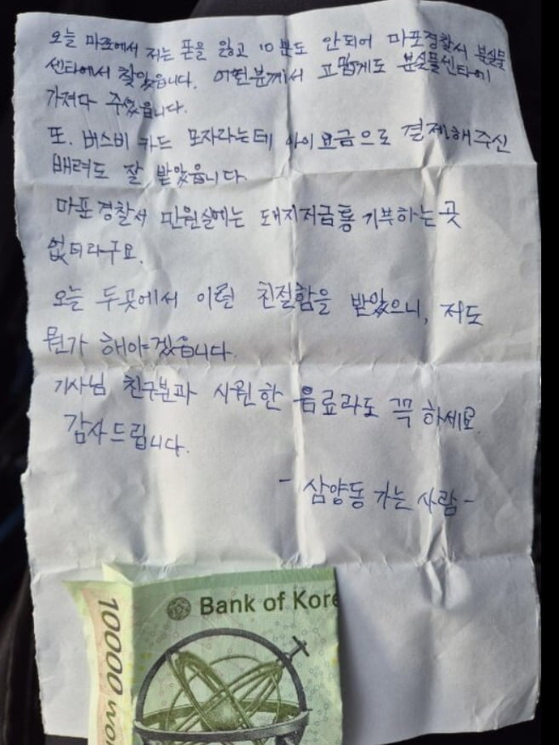 오늘 마포에서 저는 폰을 잃고 10분도 안되어 마포경찰서 분실물
센타에서 찾았습니다. 어떤분께서 고맙게도 분실물센타에
가져다 주셨습니다.
또. 버스비 카드 모자라는테 아이요금으로 결제해주신
배려도 잘 받았읍니다
마포경찰서 민원실에는 돼지저금통 기부하는곳
없더라구요.
오늘 두곳에서 이런 친절함을 받았으니, 저도
뭔가 해야겠읍니다.
기사님 친구분과 시원한 음료라도 꼭 하세요
감사드립니다.
- 삼양동 가는 사람 -
Bank of Kore
10000 won